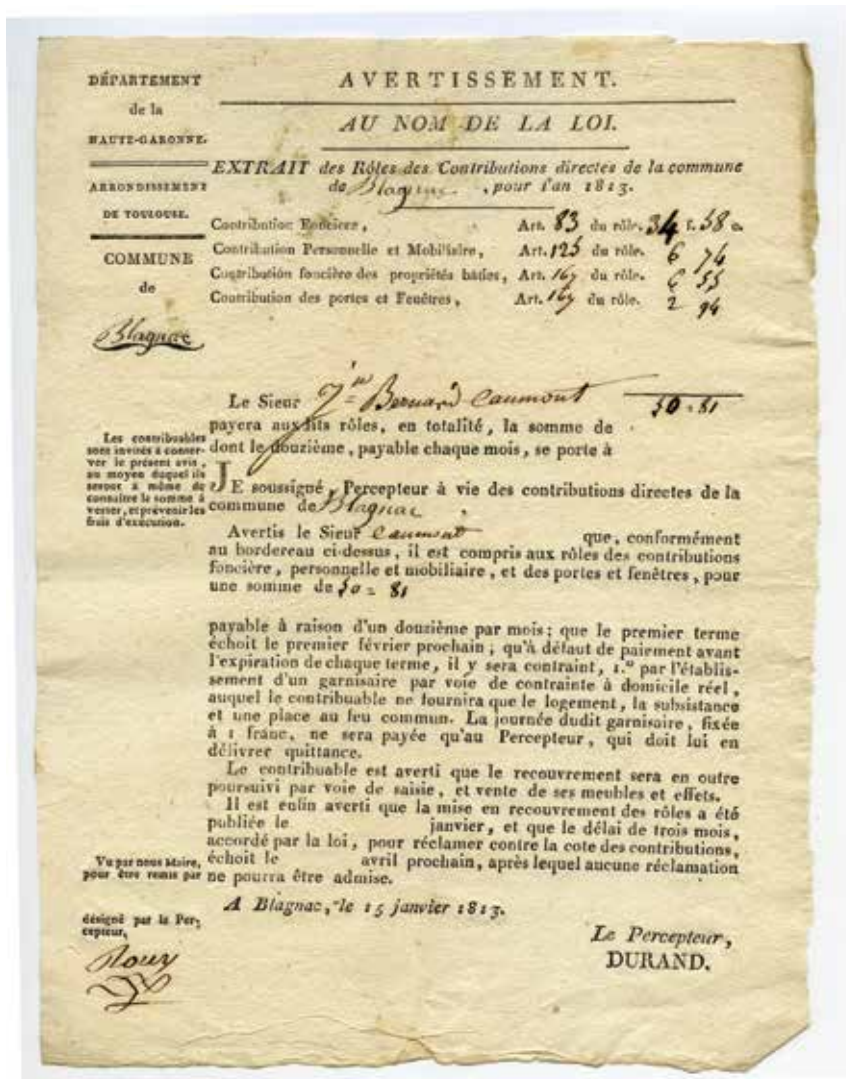 DÉPARTEMENT
de la
HAUTE-GARONNE.
ARRONDISSEMENT
DE TOULOUSE.
COMMUNE
de
Blagnac
AVERTISSEMENT.
AU NOM DE LA LOI.
EXTRAIT des Rôles des Contributions directes de la commune
de Blagnac , pour l'an 1813.
Contribution Foncière, Art. 83 du rôle. 34 f. 58 c.
Contribution Personnelle et Mobiliaire, Art. 125 du rôle. 6 74
Contribution foncière des propriétés bâties, Art. 167 du rôle. 6 55
Contribution des portes et Fenêtres, Art. 167 du rôle. 2 94
Le Sieur Bernard Caumont 50 = 81
payera auxdits rôles, en totalité, la somme de
dont le douzième, payable chaque mois, se porte à
Les contribuables
sont invités à conser-
ver le présent avis,
au moyen duquel ils
seront à même de
connaître la somme à
verser, et prévenir les
frais d'exécution.
JE soussigné, Percepteur à vie des contributions directes de la
commune de Blagnac
Avertis le Sieur Caumont que, conformément
au bordereau ci-dessus, il est compris aux rôles des contributions
foncière, personnelle et mobiliaire, et des portes et fenêtres, pour
une somme de 50 = 81
payable à raison d'un douzième par mois; que le premier terme
échoit le premier février prochain; qu'à défaut de paiement avant
l'expiration de chaque terme, il y sera contraint, 1.º par l'établis-
sement d'un garnisaire par voie de contrainte à domicile réel,
auquel le contribuable ne fournira que le logement, la subsistance
et une place au feu commun. La journée dudit garnisaire, fixée
à 1 franc, ne sera payée qu'au Percepteur, qui doit lui en
délivrer quittance.
Le contribuable est averti que le recouvrement sera en outre
poursuivi par voie de saisie, et vente de ses meubles et effets.
Il est enfin averti que la mise en recouvrement des rôles a été
publiée le janvier, et que le délai de trois mois,
accordé par la loi, pour réclamer contre la cote des contributions,
échoit le avril prochain, après lequel aucune réclamation
ne pourra être admise.
Vu par nous Maire,
pour être remis par
désigné par le Per-
cepteur,
A Blagnac, le 15 janvier 1813.
Le Percepteur,
DURAND.